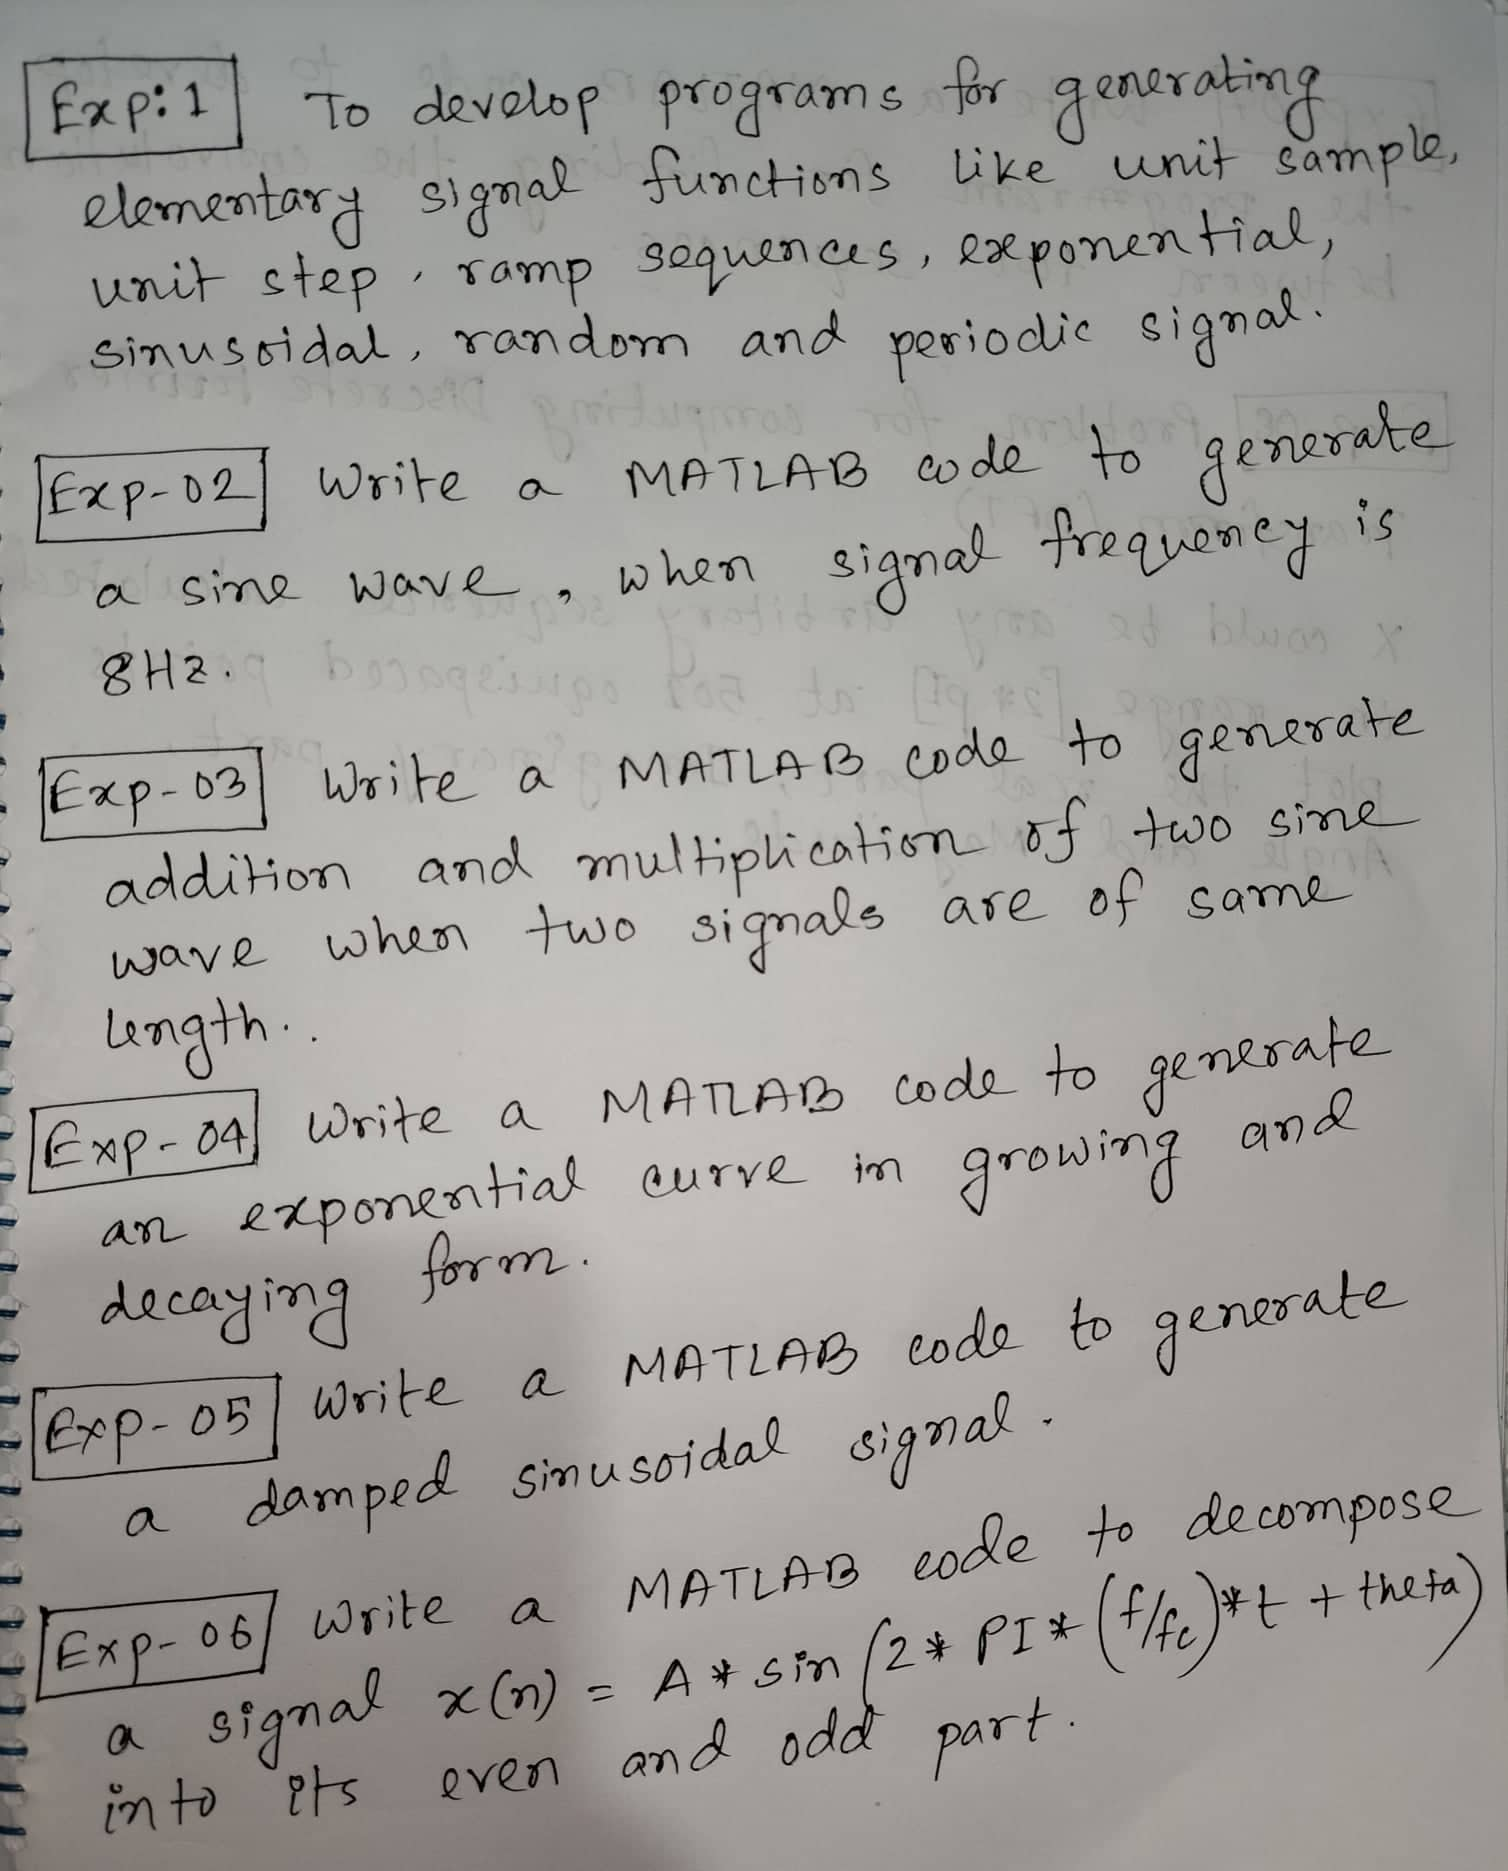 Exp: 1 To develop programs for generating
elementary signal functions like unit sample,
unit step, ramp sequences, exponential,
sinusoidal, random and periodic signal.
Exp-02 Write a MATLAB code to generate
a sine wave, when signal frequency is
8Hz.
Exp-03 Write a MATLAB code to generate
addition and multiplication of two sine
wave when two signals are of same
length..
Exp-04 Write a MATLAB code to generate
an exponential curve in growing and
decaying form.
Exp-05 Write a MATLAB code to generate
a damped sinusoidal signal.
Exp-06 Write a MATLAB code to decompose
a signal x(n) = A * sin (2 * PI * (f/fc) * t + theta)
into its even and odd part.